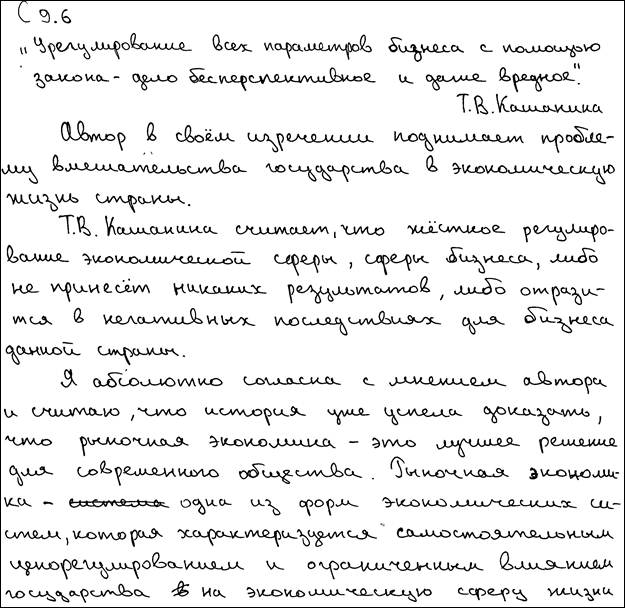 С 9.6
„Урегулирование всех параметров бизнеса с помощью
закона - дело бесперспективное и даже вредное".
Т.В. Кашанина
Автор в своём изречении поднимает пробле-
му вмешательства государства в экономическую
жизнь страны.
Т.В. Кашанина считает, что жёсткое регулиро-
вание экономической сферы, сферы бизнеса, либо
не принесёт никаких результатов, либо отрази-
тся в негативных последствиях для бизнеса
данной страны.
Я абсолютно согласна с мнением автора
и считаю, что история уже успела доказать,
что рыночная экономика - это лучшее решение
для современного общества. Рыночная экономи-
ка - система одна из форм экономических си-
стем, которая характеризуется самостоятельным
ценорегулированием и ограниченным влиянием
государства в на экономическую сферу жизни